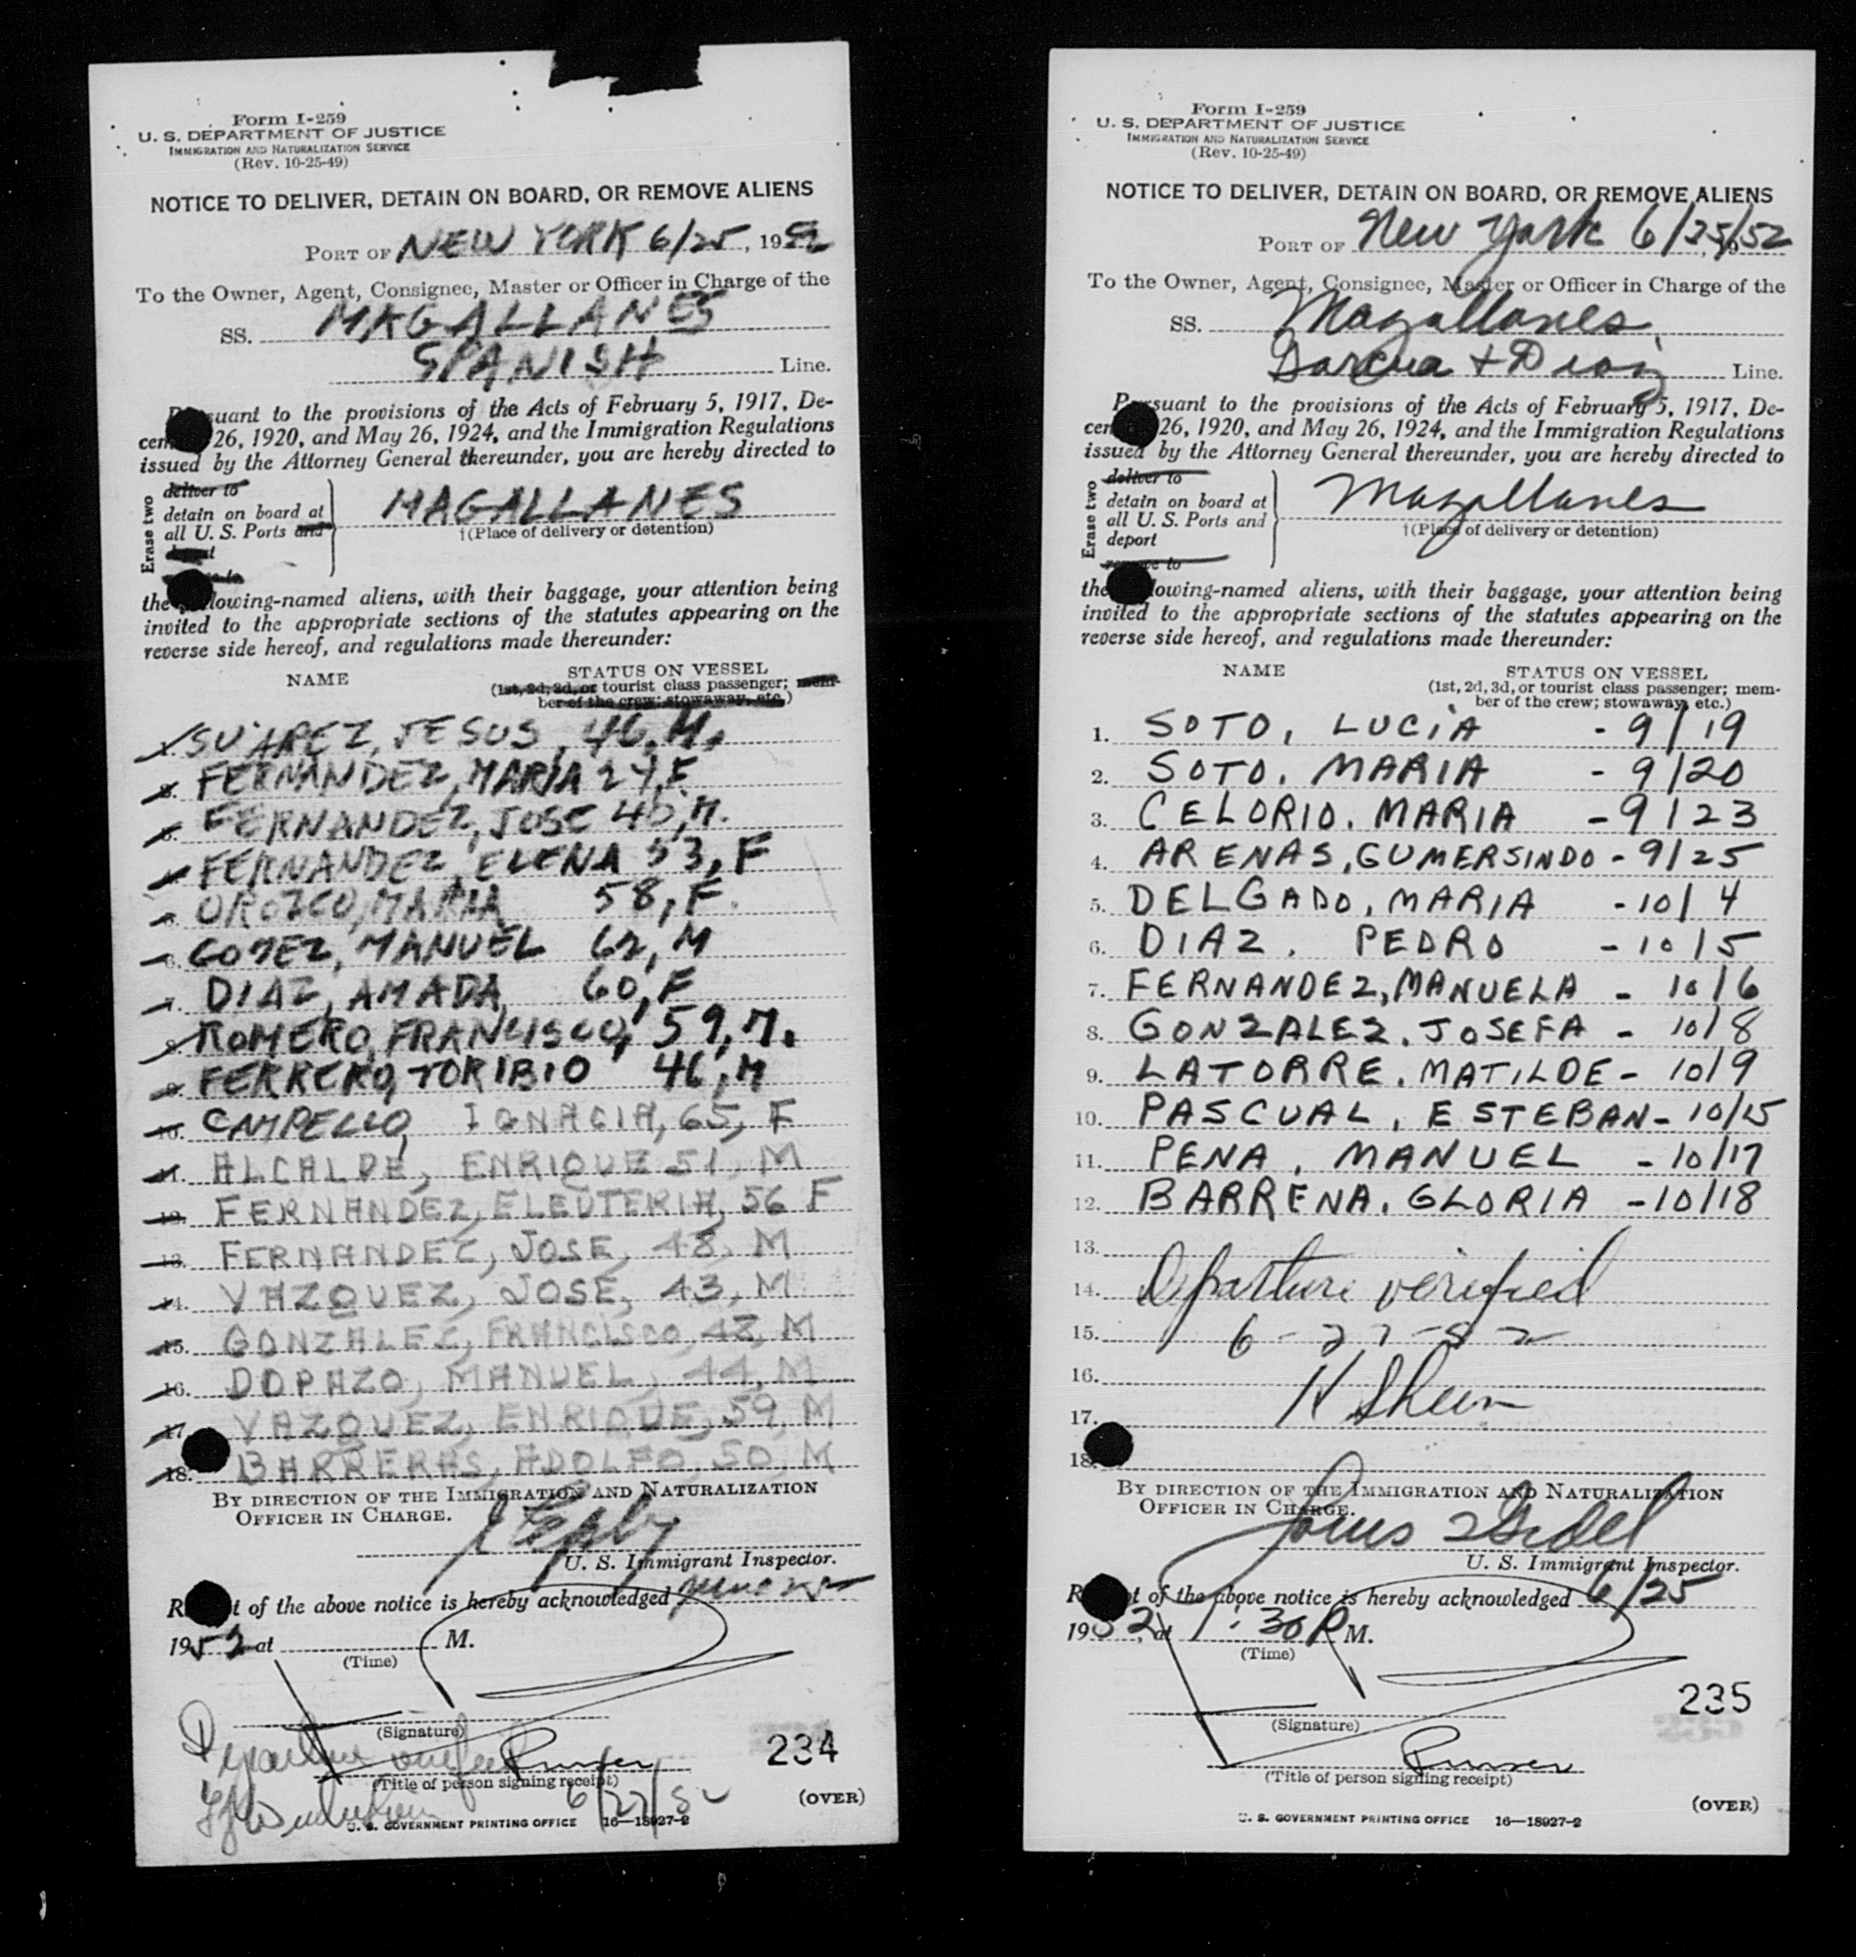 Form I-259
U. S. DEPARTMENT OF JUSTICE
IMMIGRATION AND NATURALIZATION SERVICE
(Rev. 10-25-49)
NOTICE TO DELIVER, DETAIN ON BOARD, OR REMOVE ALIENS
PORT OF NEW YORK 6/25, 1952
To the Owner, Agent, Consignee, Master or Officer in Charge of the
SS. MAGALLANES
SPANISH Line.
Pursuant to the provisions of the Acts of February 5, 1917, De-
cem 26, 1920, and May 26, 1924, and the Immigration Regulations
issued by the Attorney General thereunder, you are hereby directed to
Erase two
deliver to
detain on board at
all U. S. Ports and
MAGALLANES
†(Place of delivery or detention)
the lowing-named aliens, with their baggage, your attention being
invited to the appropriate sections of the statutes appearing on the
reverse side hereof, and regulations made thereunder:
NAME STATUS ON VESSEL
(1st, 2d, 3d, or tourist class passenger; mem-
ber of the crew; stowaway, etc.)
1. SUAREZ, JESUS, 46, M.
2. FERNANDEZ, MARIA 24, F.
3. FERNANDEZ, JOSE 40, M.
4. FERNANDEZ, ELENA 53, F
5. OROZCO, MARIA 58, F.
6. GOMEZ, MANUEL 62, M
7. DIAZ, AMADA 60, F
8. ROMERO, FRANCISCO, 59, M.
9. FERRERO, TORIBIO 46, M
10. CAMPELLO, IGNACIA, 65, F
11. ALCALDE, ENRIQUE 51, M
12. FERNANDEZ, ELEUTERIA, 56 F
13. FERNANDEZ, JOSE, 48, M
14. VAZQUEZ, JOSE, 43, M
15. GONZALEZ, FRANCISCO, 42, M
16. DOPAZO, MANUEL, 44, M
17. VAZQUEZ, ENRIQUE, 59, M
18. BARRERAS, ADOLFO, 50, M
BY DIRECTION OF THE IMMIGRATION AND NATURALIZATION
OFFICER IN CHARGE.
U. S. Immigrant Inspector.
R t of the above notice is hereby acknowledged June 25
1952 at M.
(Time)
(Signature)
Departure verified
Purser
(Title of person signing receipt)
6/27/52
234
(OVER)
U. S. GOVERNMENT PRINTING OFFICE 16—18927-2
Form I-259
U. S. DEPARTMENT OF JUSTICE
IMMIGRATION AND NATURALIZATION SERVICE
(Rev. 10-25-49)
NOTICE TO DELIVER, DETAIN ON BOARD, OR REMOVE ALIENS
PORT OF New York 6/25/52
To the Owner, Agent, Consignee, Master or Officer in Charge of the
SS. Magallanes
Garcia + Diaz Line.
Pursuant to the provisions of the Acts of February 5, 1917, De-
cem 26, 1920, and May 26, 1924, and the Immigration Regulations
issued by the Attorney General thereunder, you are hereby directed to
Erase two
deliver to
detain on board at
all U. S. Ports and
deport
remove to
Magallanes
†(Place of delivery or detention)
the lowing-named aliens, with their baggage, your attention being
invited to the appropriate sections of the statutes appearing on the
reverse side hereof, and regulations made thereunder:
NAME STATUS ON VESSEL
(1st, 2d, 3d, or tourist class passenger; mem-
ber of the crew; stowaway, etc.)
1. SOTO, LUCIA - 9/19
2. SOTO, MARIA - 9/20
3. CELORIO, MARIA - 9/23
4. ARENAS, GUMERSINDO - 9/25
5. DELGADO, MARIA - 10/4
6. DIAZ, PEDRO - 10/5
7. FERNANDEZ, MANUELA - 10/6
8. GONZALEZ, JOSEFA - 10/8
9. LATORRE, MATILDE - 10/9
10. PASCUAL, ESTEBAN - 10/15
11. PENA, MANUEL - 10/17
12. BARRENA, GLORIA - 10/18
13.
14. Departure verified
15. 6-27-52
16.
17.
18.
BY DIRECTION OF THE IMMIGRATION AND NATURALIZATION
OFFICER IN CHARGE.
Louis
U. S. Immigrant Inspector.
R t of the above notice is hereby acknowledged 6/25
1952, at 1:30 P M.
(Time)
235
(Signature)
Purser
(Title of person signing receipt)
(OVER)
U. S. GOVERNMENT PRINTING OFFICE 16—18927-2